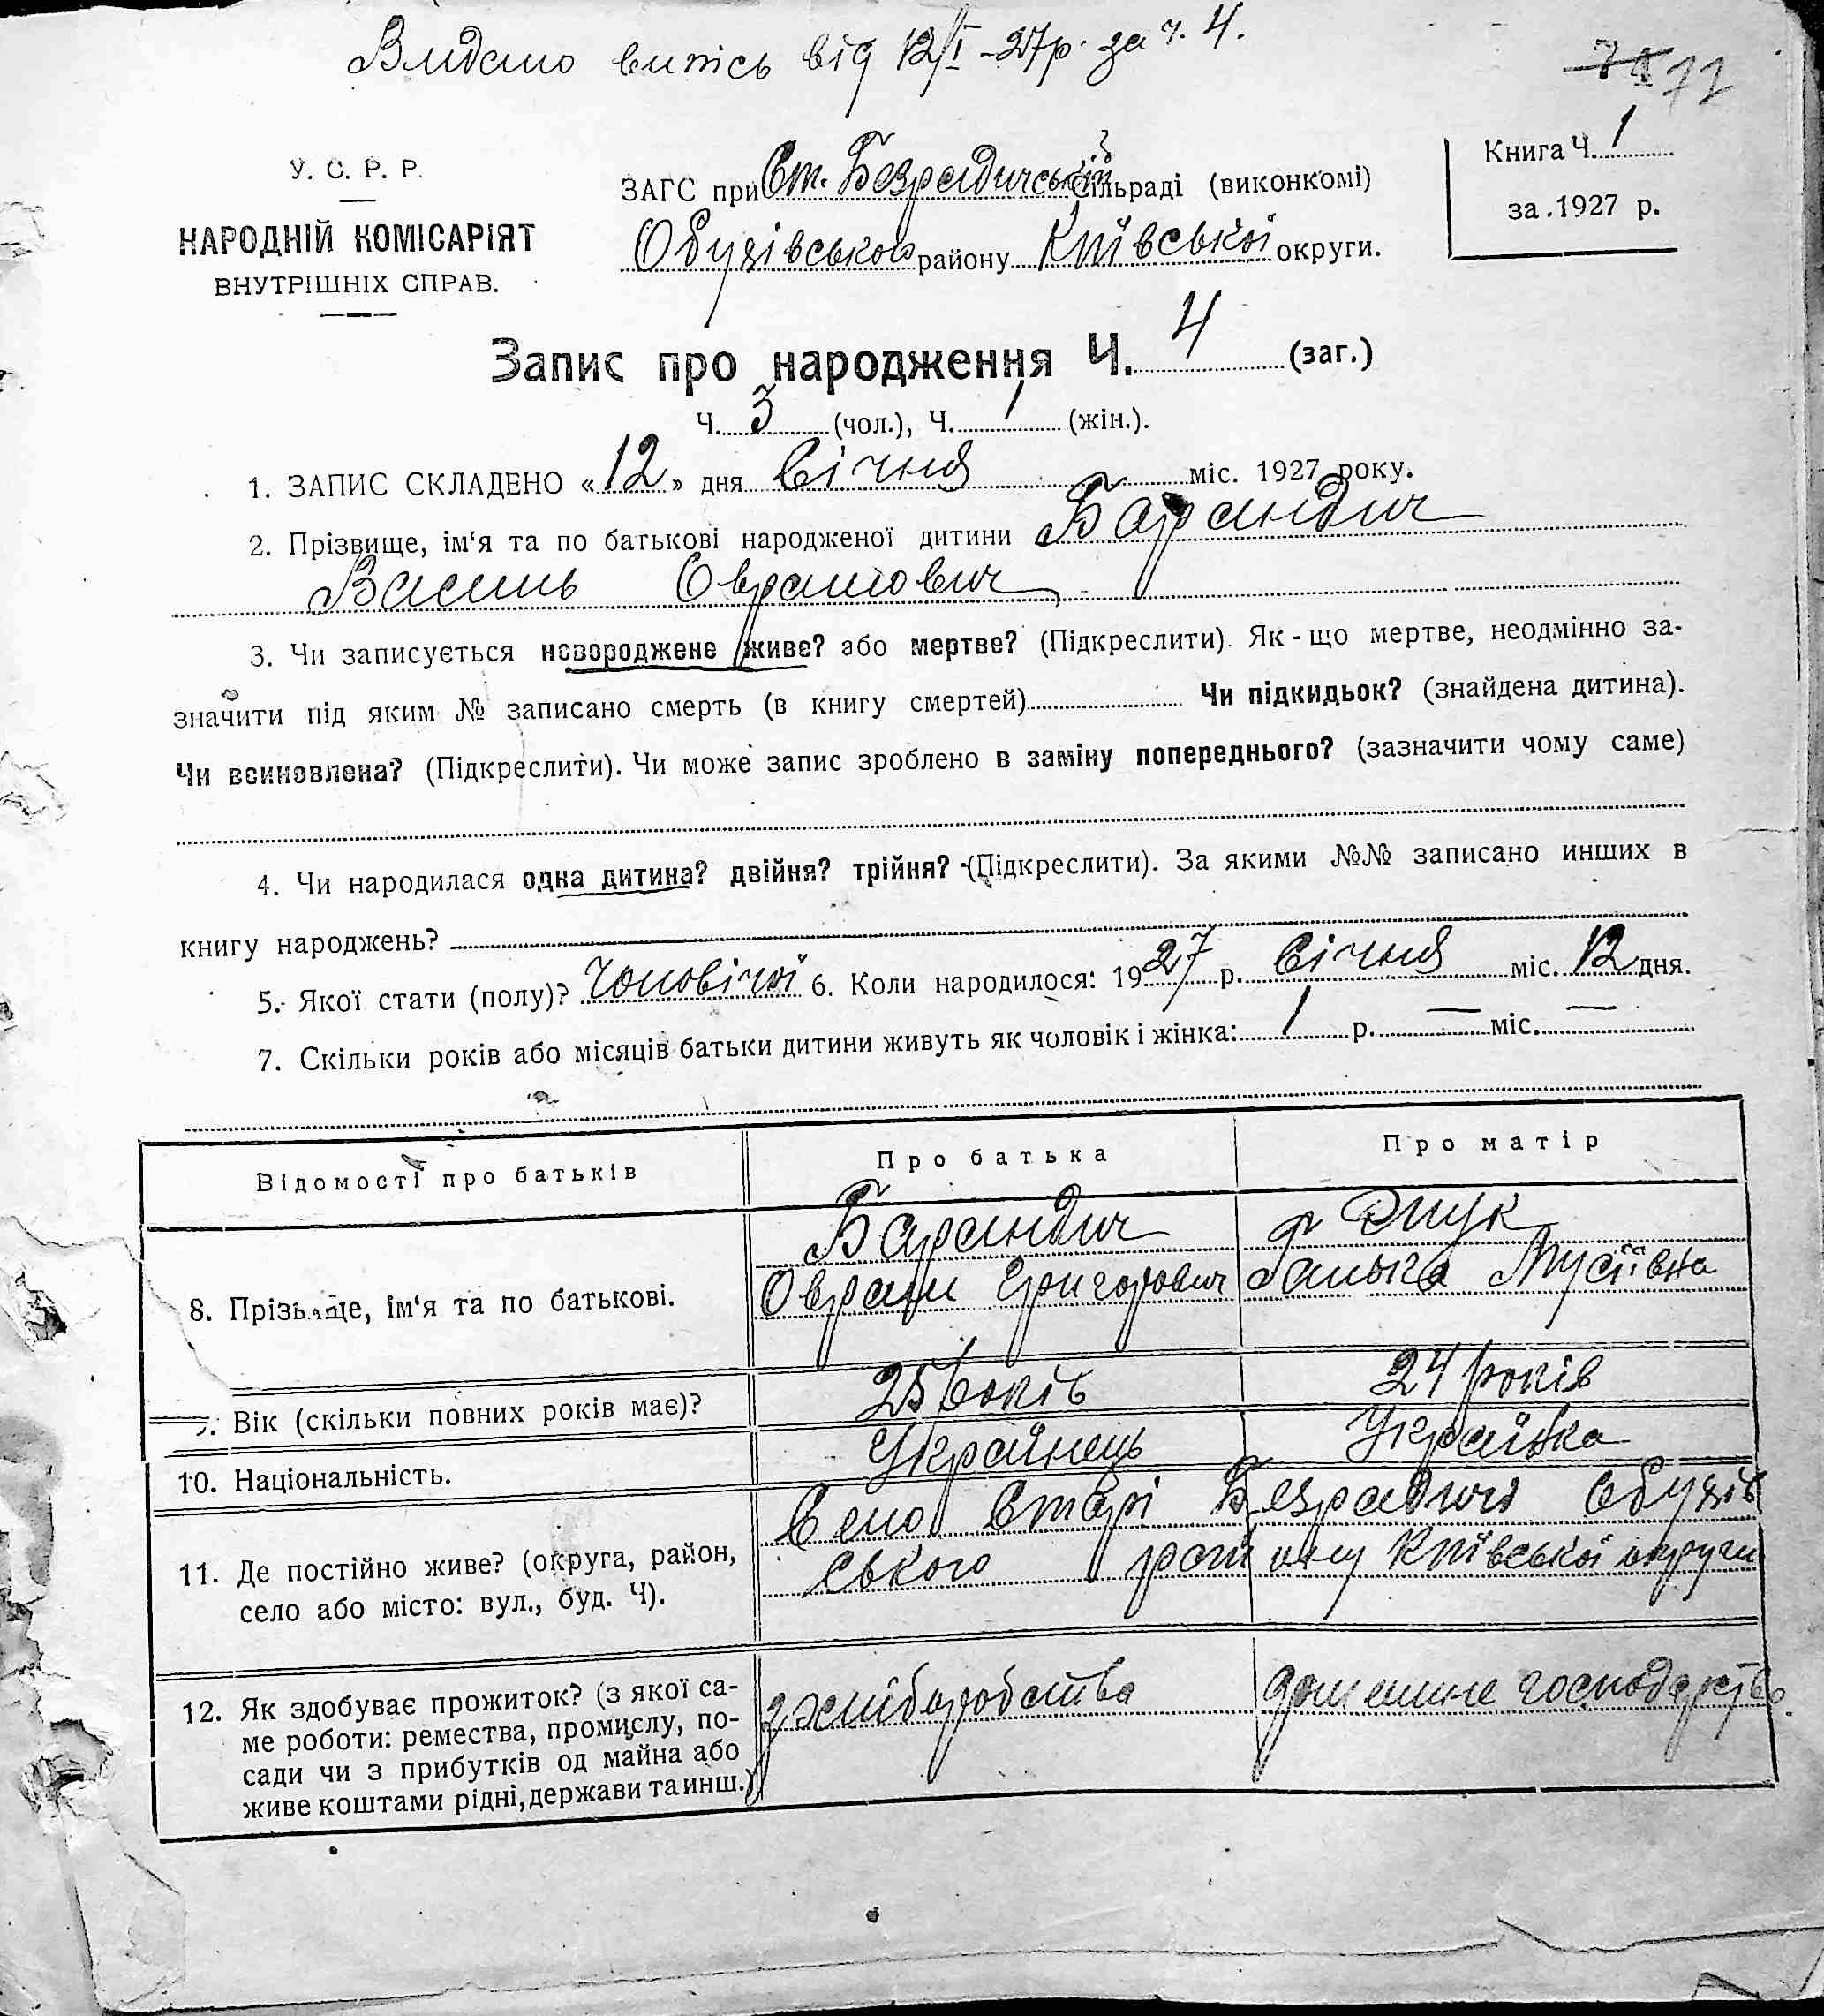 Видано випись від 12/I-27р. за ч. 4.
72
Книга Ч. 1
за 1927 р.
У. С. Р. Р.
НАРОДНІЙ КОМІСАРІЯТ
ВНУТРІШНІХ СПРАВ.
ЗАГС при Ст. Безрадичській сільраді (виконкомі)
Обухівського району Київської округи.
Запис про народження Ч. 4 (заг.)
Ч. 3 (чол.), Ч. 1 (жін.).
1. ЗАПИС СКЛАДЕНО «12» дня Січня міс. 1927 року.
2. Прізвище, ім‘я та по батькові народженої дитини Барандич
Василь Оврамович
3. Чи записується новороджене живе? або мертве? (Підкреслити). Як-що мертве, неодмінно за-
значити під яким № записано смерть (в книгу смертей) Чи підкидьок? (знайдена дитина).
Чи всиновлена? (Підкреслити). Чи може запис зроблено в заміну попереднього? (зазначити чому саме)
4. Чи народилася одна дитина? двійня? трійня? (Підкреслити). За якими №№ записано инших в
книгу народжень?
5. Якої стати (полу)? Чоловічої 6. Коли народилося: 1927 р. Січня міс. 12 дня.
7. Скільки років або місяців батьки дитини живуть як чоловік і жінка: 1 р. — міс. —
Відомості про батьків Про батька Про матір
8. Прізвище, ім‘я та по батькові.
Барандич
Оврам Григорович
Мусіївна
9. Вік (скільки повних років має)? 25 років 24 років
10. Національність. Українець Українка
11. Де постійно живе? (округа, район,
село або місто: вул., буд. Ч).
Село Старі Безрадичі Обухів
ського району Київської округи
12. Як здобуває прожиток? (з якої са-
ме роботи: ремества, промислу, по-
сади чи з прибутків од майна або
живе коштами рідні, держави та инш.)
з хліборобства
домашнє господарство.